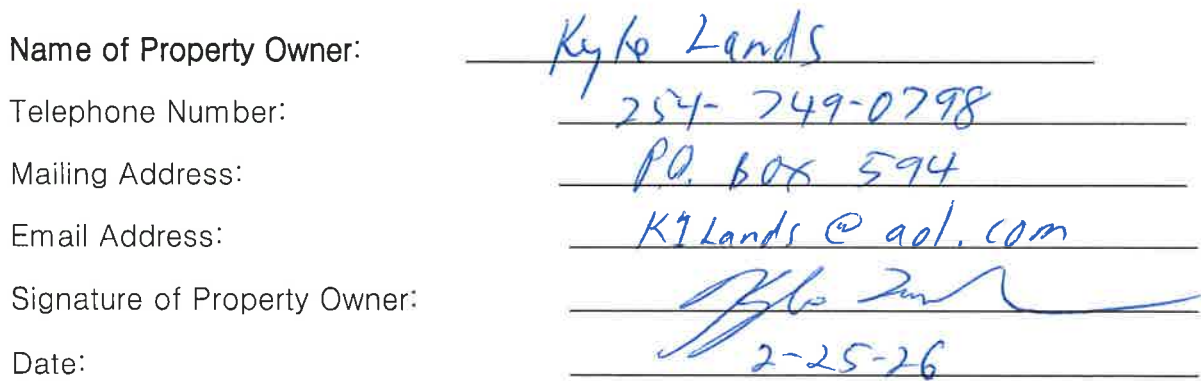 Name of Property Owner: Kyle Lands
Telephone Number: 254-749-0798
Mailing Address: P.O. Box 594
Email Address: Lands@aol.com
Signature of Property Owner: Kyle
Date: 2-25-26